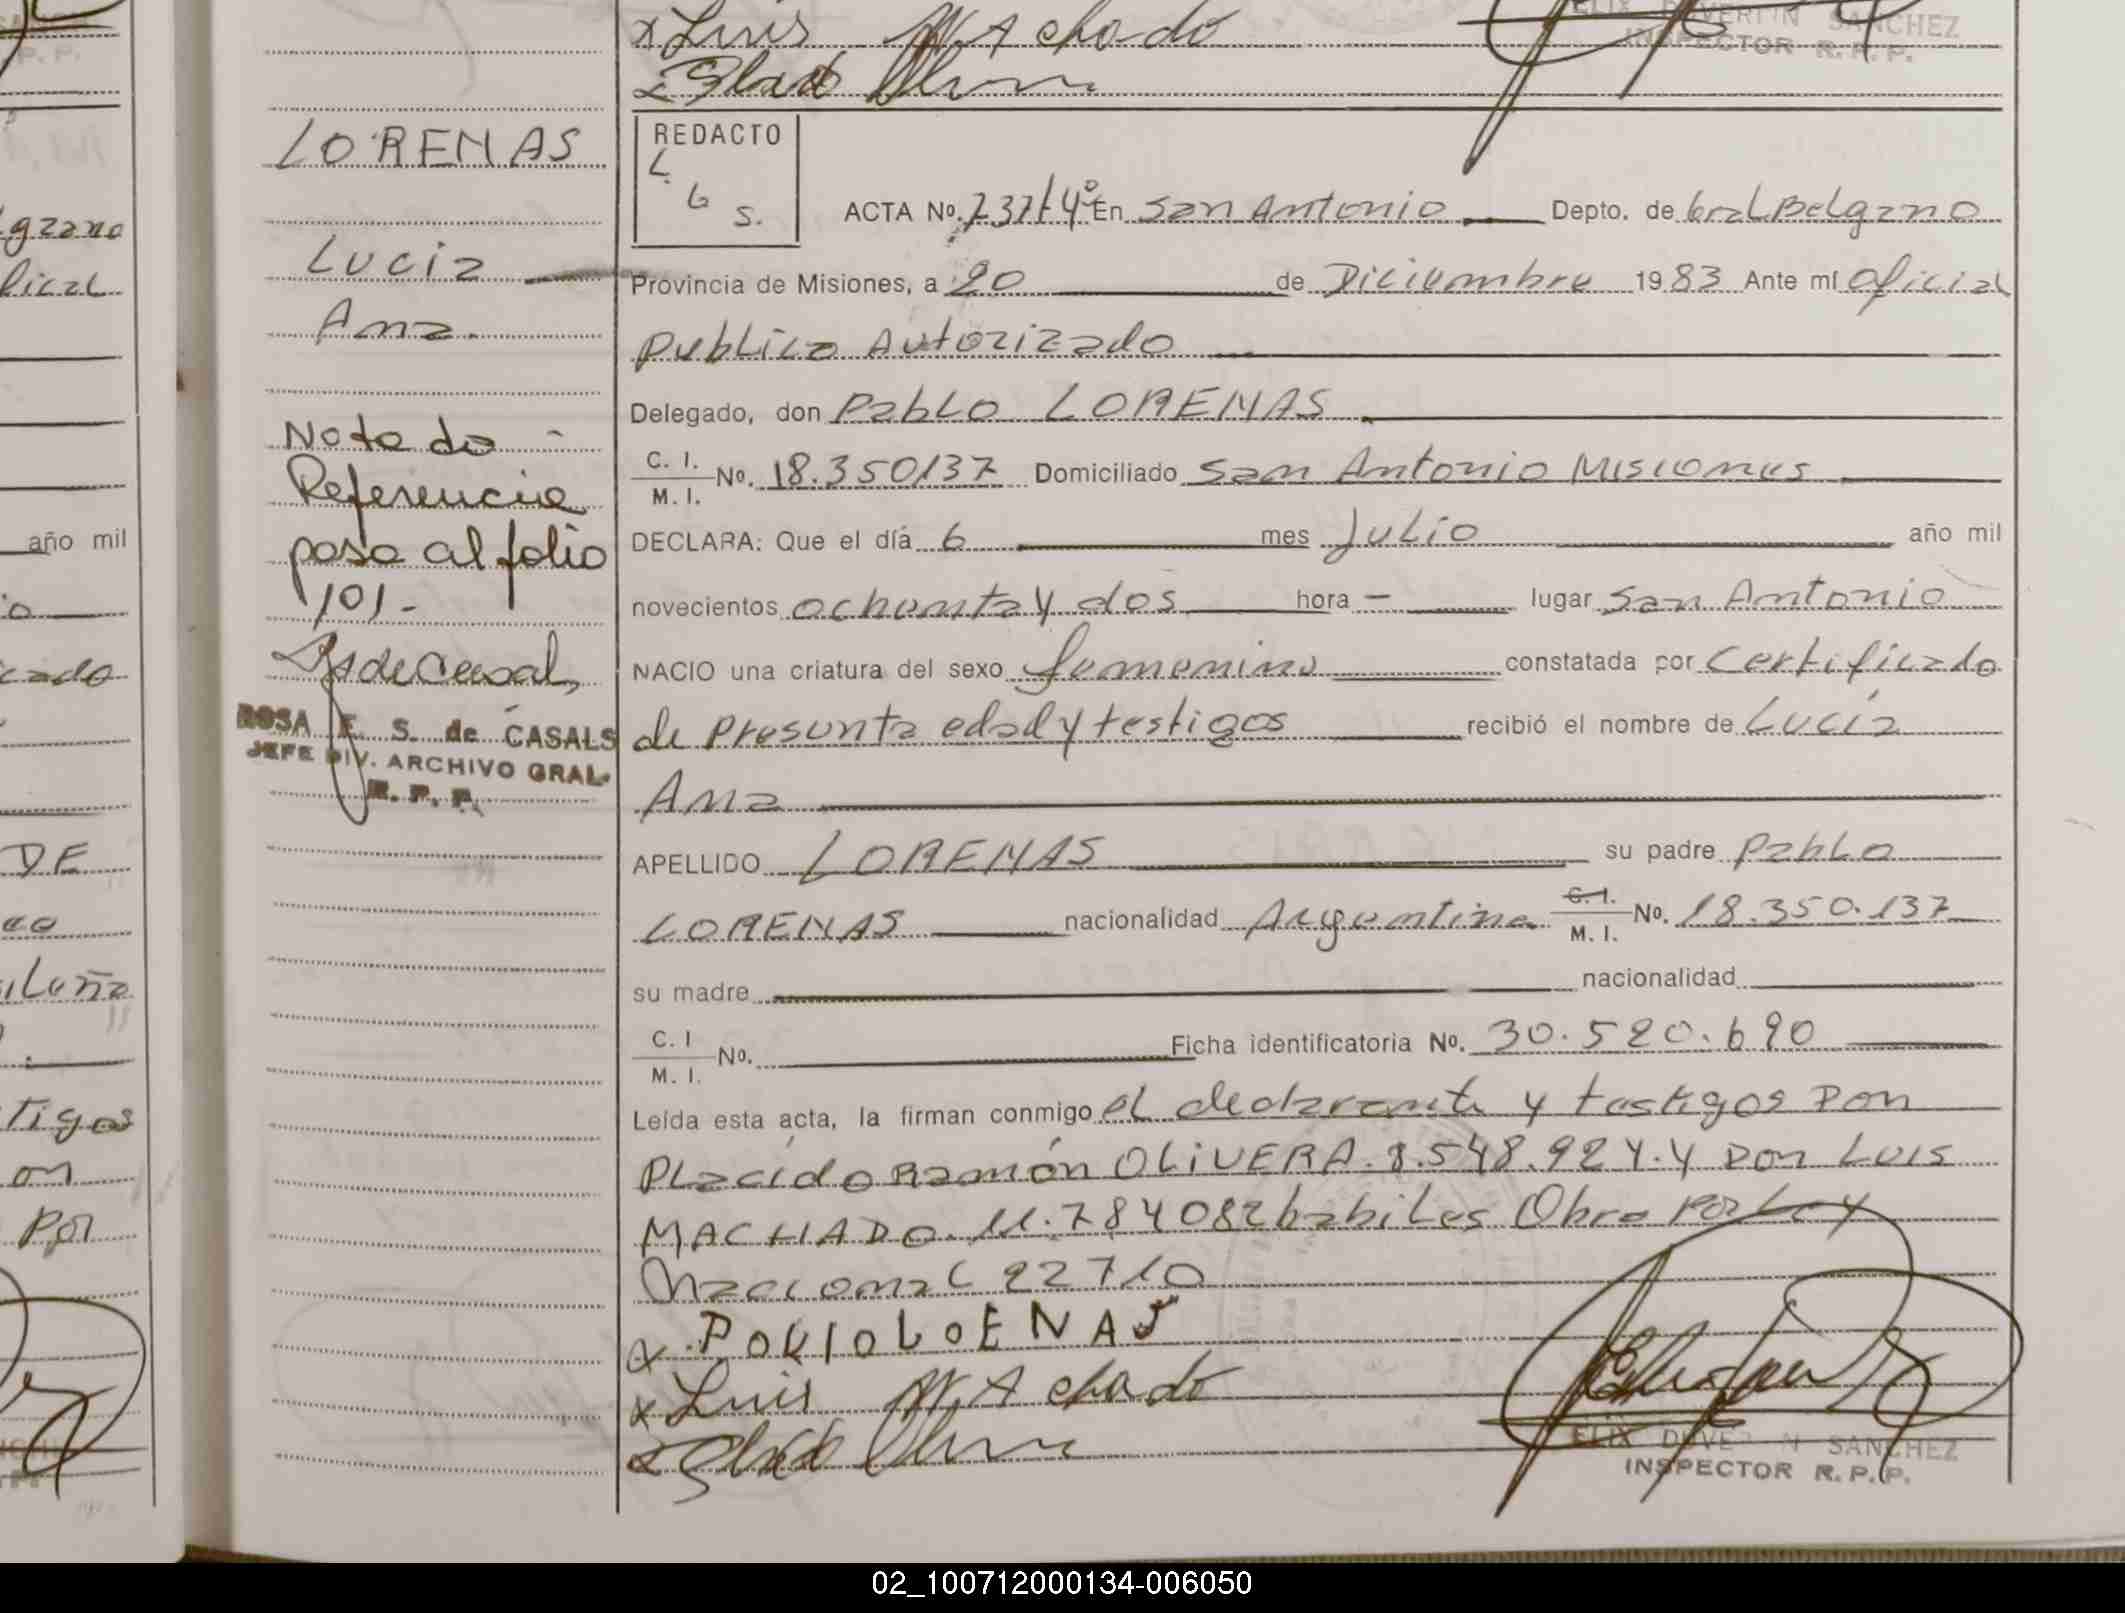 x Luis MAchado
FELIX DUVERLIN SANCHEZ
INSPECTOR R.P.P.
LORENAS
Lucia
Ana.
Nota de -
Referencia
pasa al folio
101.-
ROSA E. S. de CASALS
JEFE DIV. ARCHIVO GRAL.
R. P. P.
REDACTO
L.
G
S.
ACTA No. 237 t 4º En San Antonio Depto. de Gral Belgrano
Provincia de Misiones, a 20 de Diciembre 1983 Ante mí Oficial
Publico Autorizado
Delegado, don Pablo LORENAS
C. I.
M. I. No. 18.350137 Domiciliado San Antonio Misiones
DECLARA: Que el día 6 mes Julio año mil
novecientos ochenta y dos hora - lugar San Antonio
NACIO una criatura del sexo femenino constatada por Certificado
de Presunta edad y testigos recibió el nombre de Lucía
Ana
APELLIDO LORENAS su padre Pablo
LORENAS nacionalidad Argentina C. I.
M. I. No. 18.350.137
su madre nacionalidad
C. I
M. I. No. Ficha identificatoria No. 30.520.690
Leída esta acta, la firman conmigo el declarante y testigos Don
Placido Ramón OLIVERA. 8.548.924. y Don Luis
MACHADO. 11.784082 habiles Obra por Ley
Nacional 22710
x Luis MAchado
FELIX DUVERLIN SANCHEZ
INSPECTOR R.P.P.
grano
ficial
año mil
icado
DE
tigos
on
Por
02_100712000134-006050